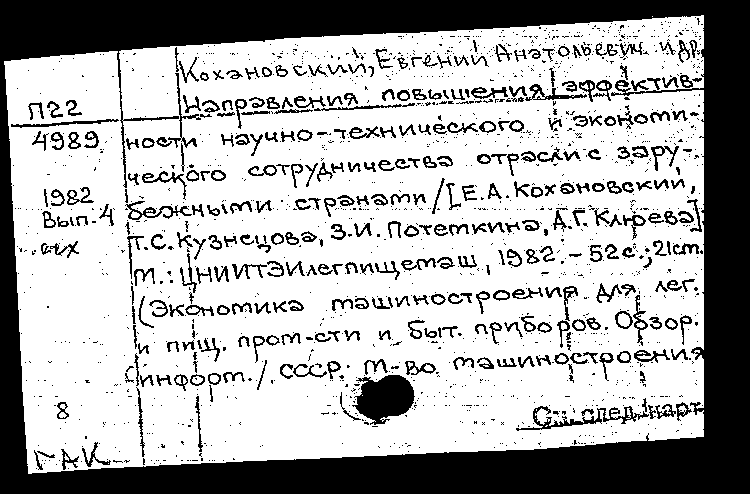 Кохановский, Евгений Анатольевич и др.
П22 Направления повышения эффектив-
4989 ности научно-технического и экономи-
ческого сотрудничества отрасли с зару-
1982 бежными странами / [Е.А. Кохановский,
Вып. 4 Т.С. Кузнецова, З.И. Потемкина, А.Г. Клюева].
М.: ЦНИИТЭИлегпищемаш, 1982. - 52 с.; 21 см.
(Экономика машиностроения для лег.
и пищ. пром-сти и быт. приборов. Обзор.
информ. /. СССР. М-во машиностроения
8
См. след. карт
ГАК